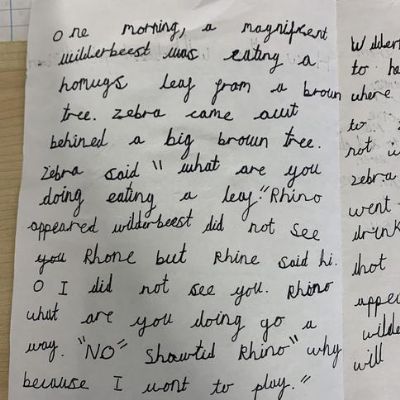 One morning, a magnifisent
wilderbeest was eating a
homugs leaf from a brown
tree. Zebra came awt
behined a big brown tree.
Zebra said " what are you
doing eating a leaf." Rhino
appeared wilderbeest did not see
you Rhone but Rhine said hi.
O I did not see you. Rhino
what are you doing go a
way. "NO" Showtid Rhino" why
because I wont to play."
Wilder
to ha
where
to
not i
zebra
went
drink
hot
appea
wilde
will